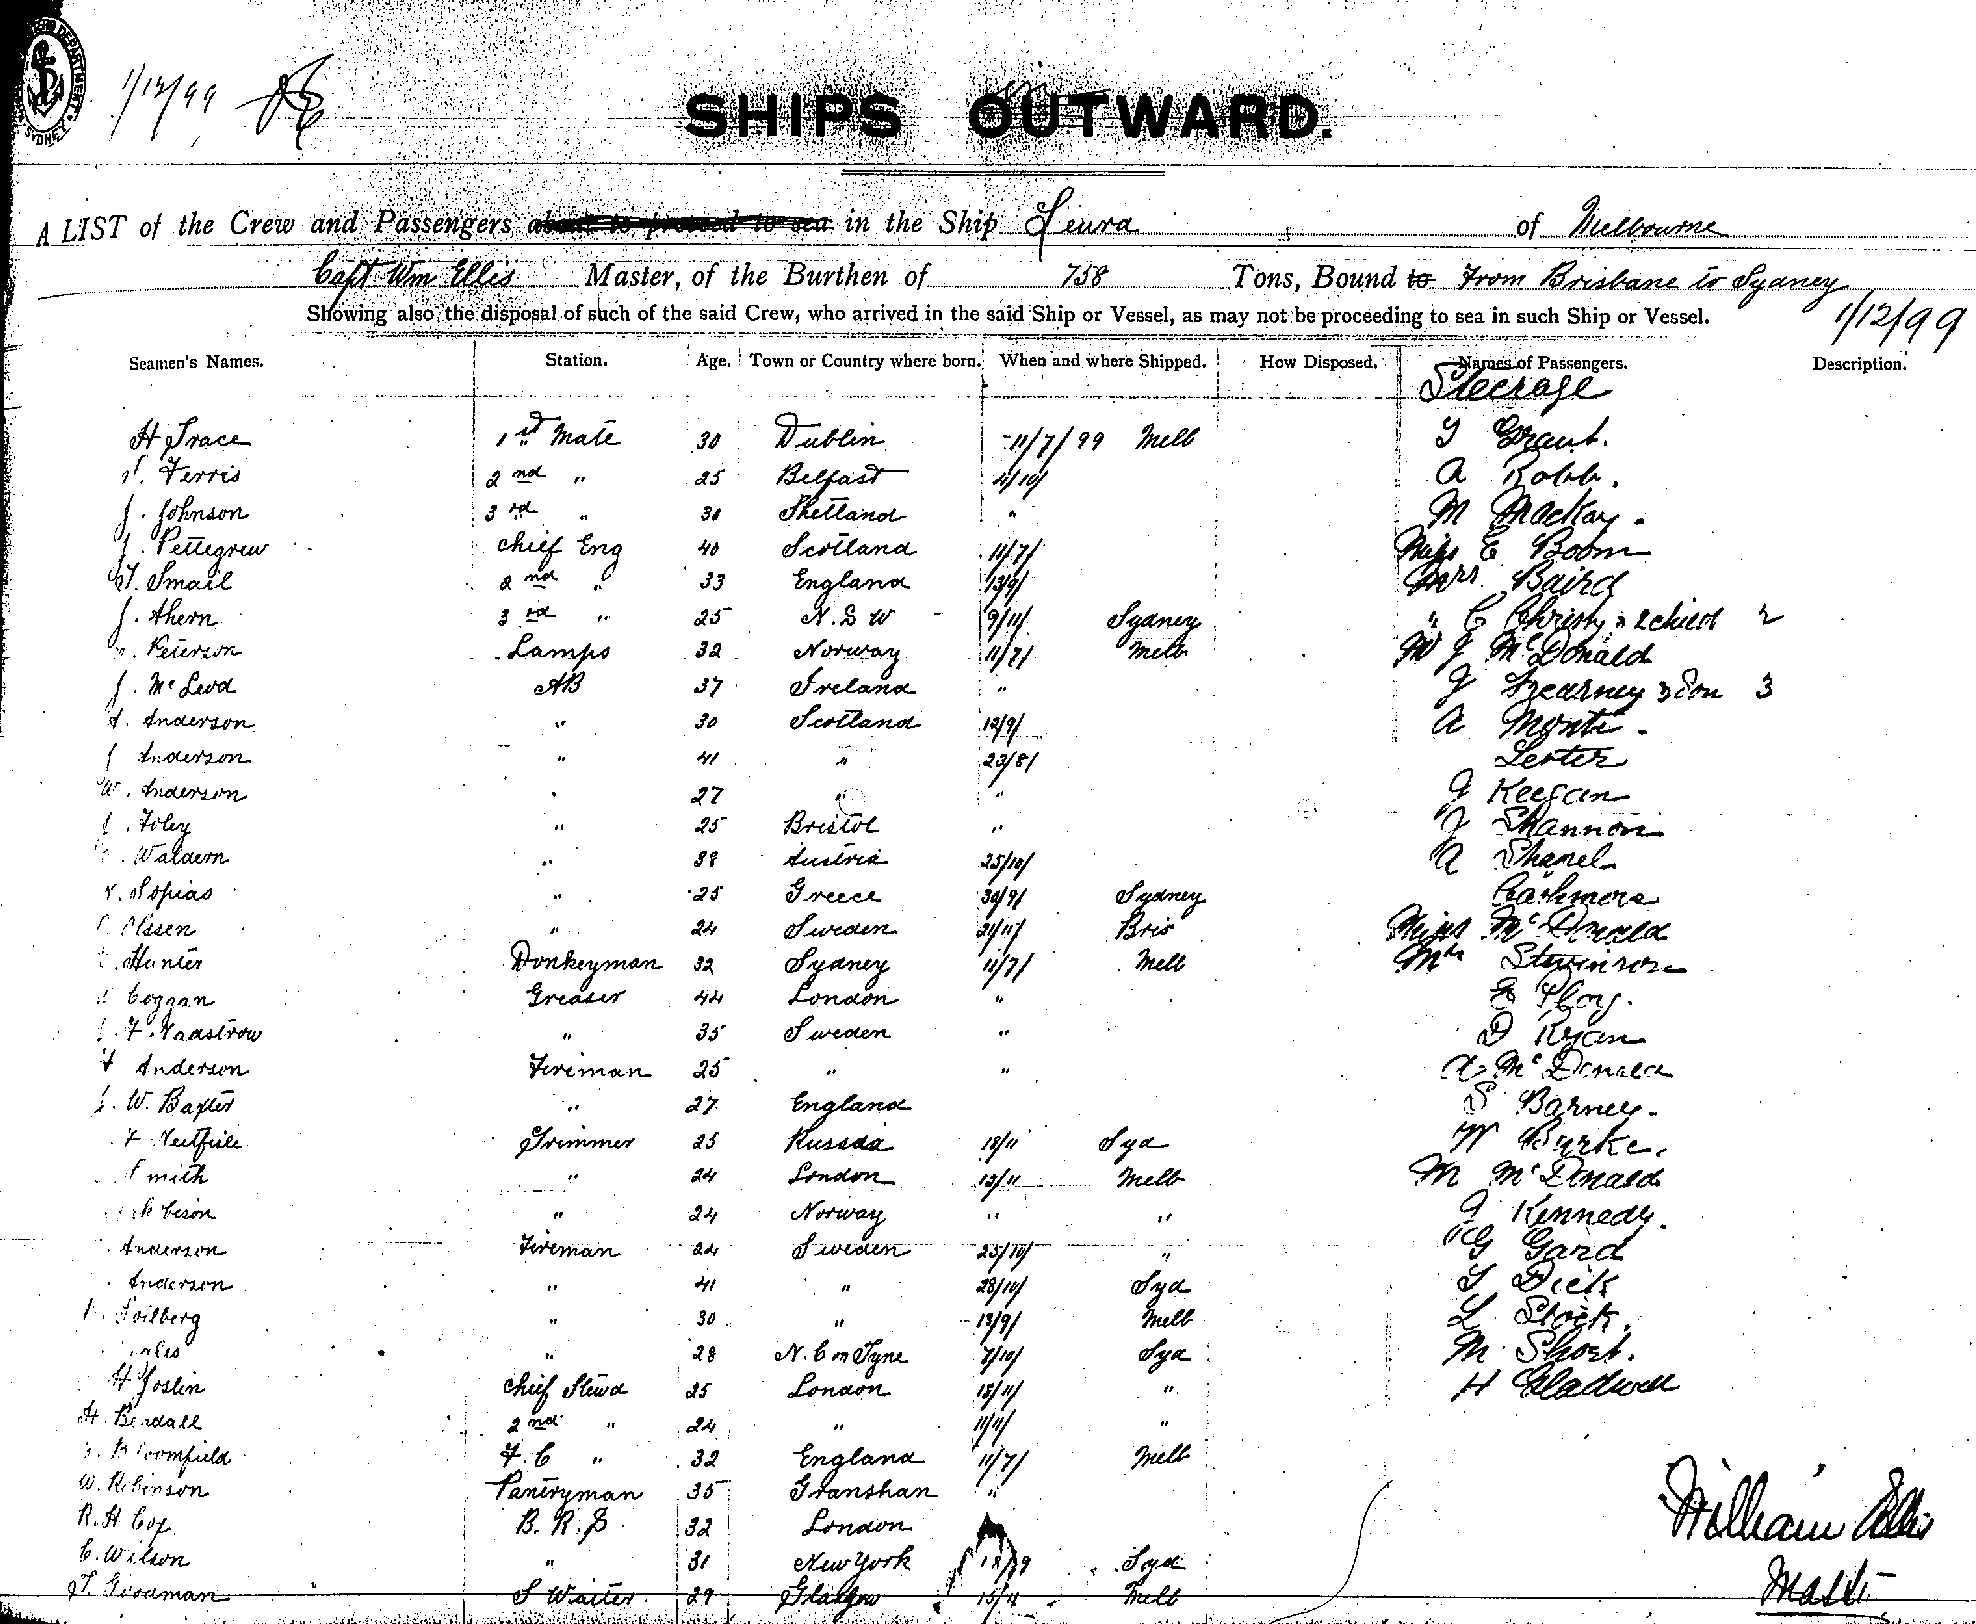 1/12/99
SHIPS OUTWARD.
A LIST of the Crew and Passengers about to proceed to sea in the Ship Leura of Melbourne
Capt Wm Ellis Master, of the Burthen of 758 Tons, Bound to From Brisbane to Sydney
1/12/99
Showing also the disposal of such of the said Crew, who arrived in the said Ship or Vessel, as may not be proceeding to sea in such Ship or Vessel.
Seamen's Names. Station. Age. Town or Country where born. When and where Shipped. How Disposed. Names of Passengers. Description.
Steerage
H Trace 1st Mate 30 Dublin 11/7/99 Melb T Grant.
Ferris 2nd " 25 Belfast 4/10/ A Robb.
J. Johnson 3rd " 30 Shetland " M Mackay.
J. Pettegrew Chief Eng 40 Scotland 11/7/ Miss E Boom
T. Smail 2nd " 33 England 13/9/ Mrs Baird
J. Ahern 3rd " 25 N.S W 9/11/ Sydney " C Christy & 2 child 2
Peterson Lamps 32 Norway 11/7/ Melb M J McDonald
J. McLeod AB 37 Ireland " J Kearney & Son 3
A. Anderson " 30 Scotland 12/9/ A Monti.
J Anderson " 41 " 23/8/ Lester
W. Anderson " 27 " " J Keegan
J. Foley " 25 Bristol " J Shannon
Waldern " 38 Austria 25/10/ A Shanel
Sopias " 25 Greece 30/9/ Sydney Cashmore
Olssen " 24 Sweden 21/11/ Bris Miss McDonald
Hunter Donkeyman 32 Sydney 11/7/ Melb Mrs Stevinson
Coggan Greaser 44 London "
F. Naastrow " 35 Sweden " D Ryan
Anderson Fireman 25 " " A McDonald
W. Baxter " 27 England S Barney.
Trimmer 25 Russia 18/11 Syd W Burke.
Smith " 24 London 12/11 Melb M McDonald
" 24 Norway " " J Kennedy.
Anderson Fireman 24 Sweden 25/10/ " G Gard
Anderson " 41 " 28/10/ Syd T Dick
Soilberg " 30 " 13/9/ Melb L Stock.
" 28 N. C on Tyne 7/10/ Syd M. Short.
H Joslin Chief Stewd 25 London 15/11/ " H Gladwell
H. Beadall 2nd " 24 " 11/11/ "
Bloomfield F. C " 32 England 11/7/ Melb
W. Robinson Pantryman 35 Granshan "
R. H Cox B. R. S 32 London
C. Wilson " 31 New York Syd
T. Goodman S Waiter 29 Glasgow 15/11 Melb
William Ellis
Master